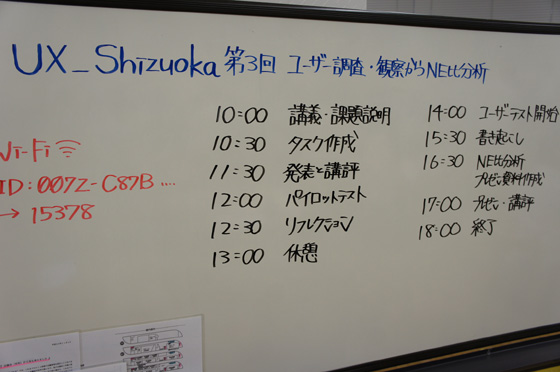 UX_Shizuoka 第3回 ユーザー調査・観察からNE比分析
Wi-Fi
ID:007Z-C87B ....
→ 15378
10:00 講義・課題説明
10:30 タスク作成
11:30 発表と講評
12:00 パイロットテスト
12:30 リフレクション
13:00 休憩
14:00 ユーザーテスト開始
15:30 書き起こし
16:30 NE比分析
プレゼン資料作成
17:00 プレゼン・講評
18:00 終了